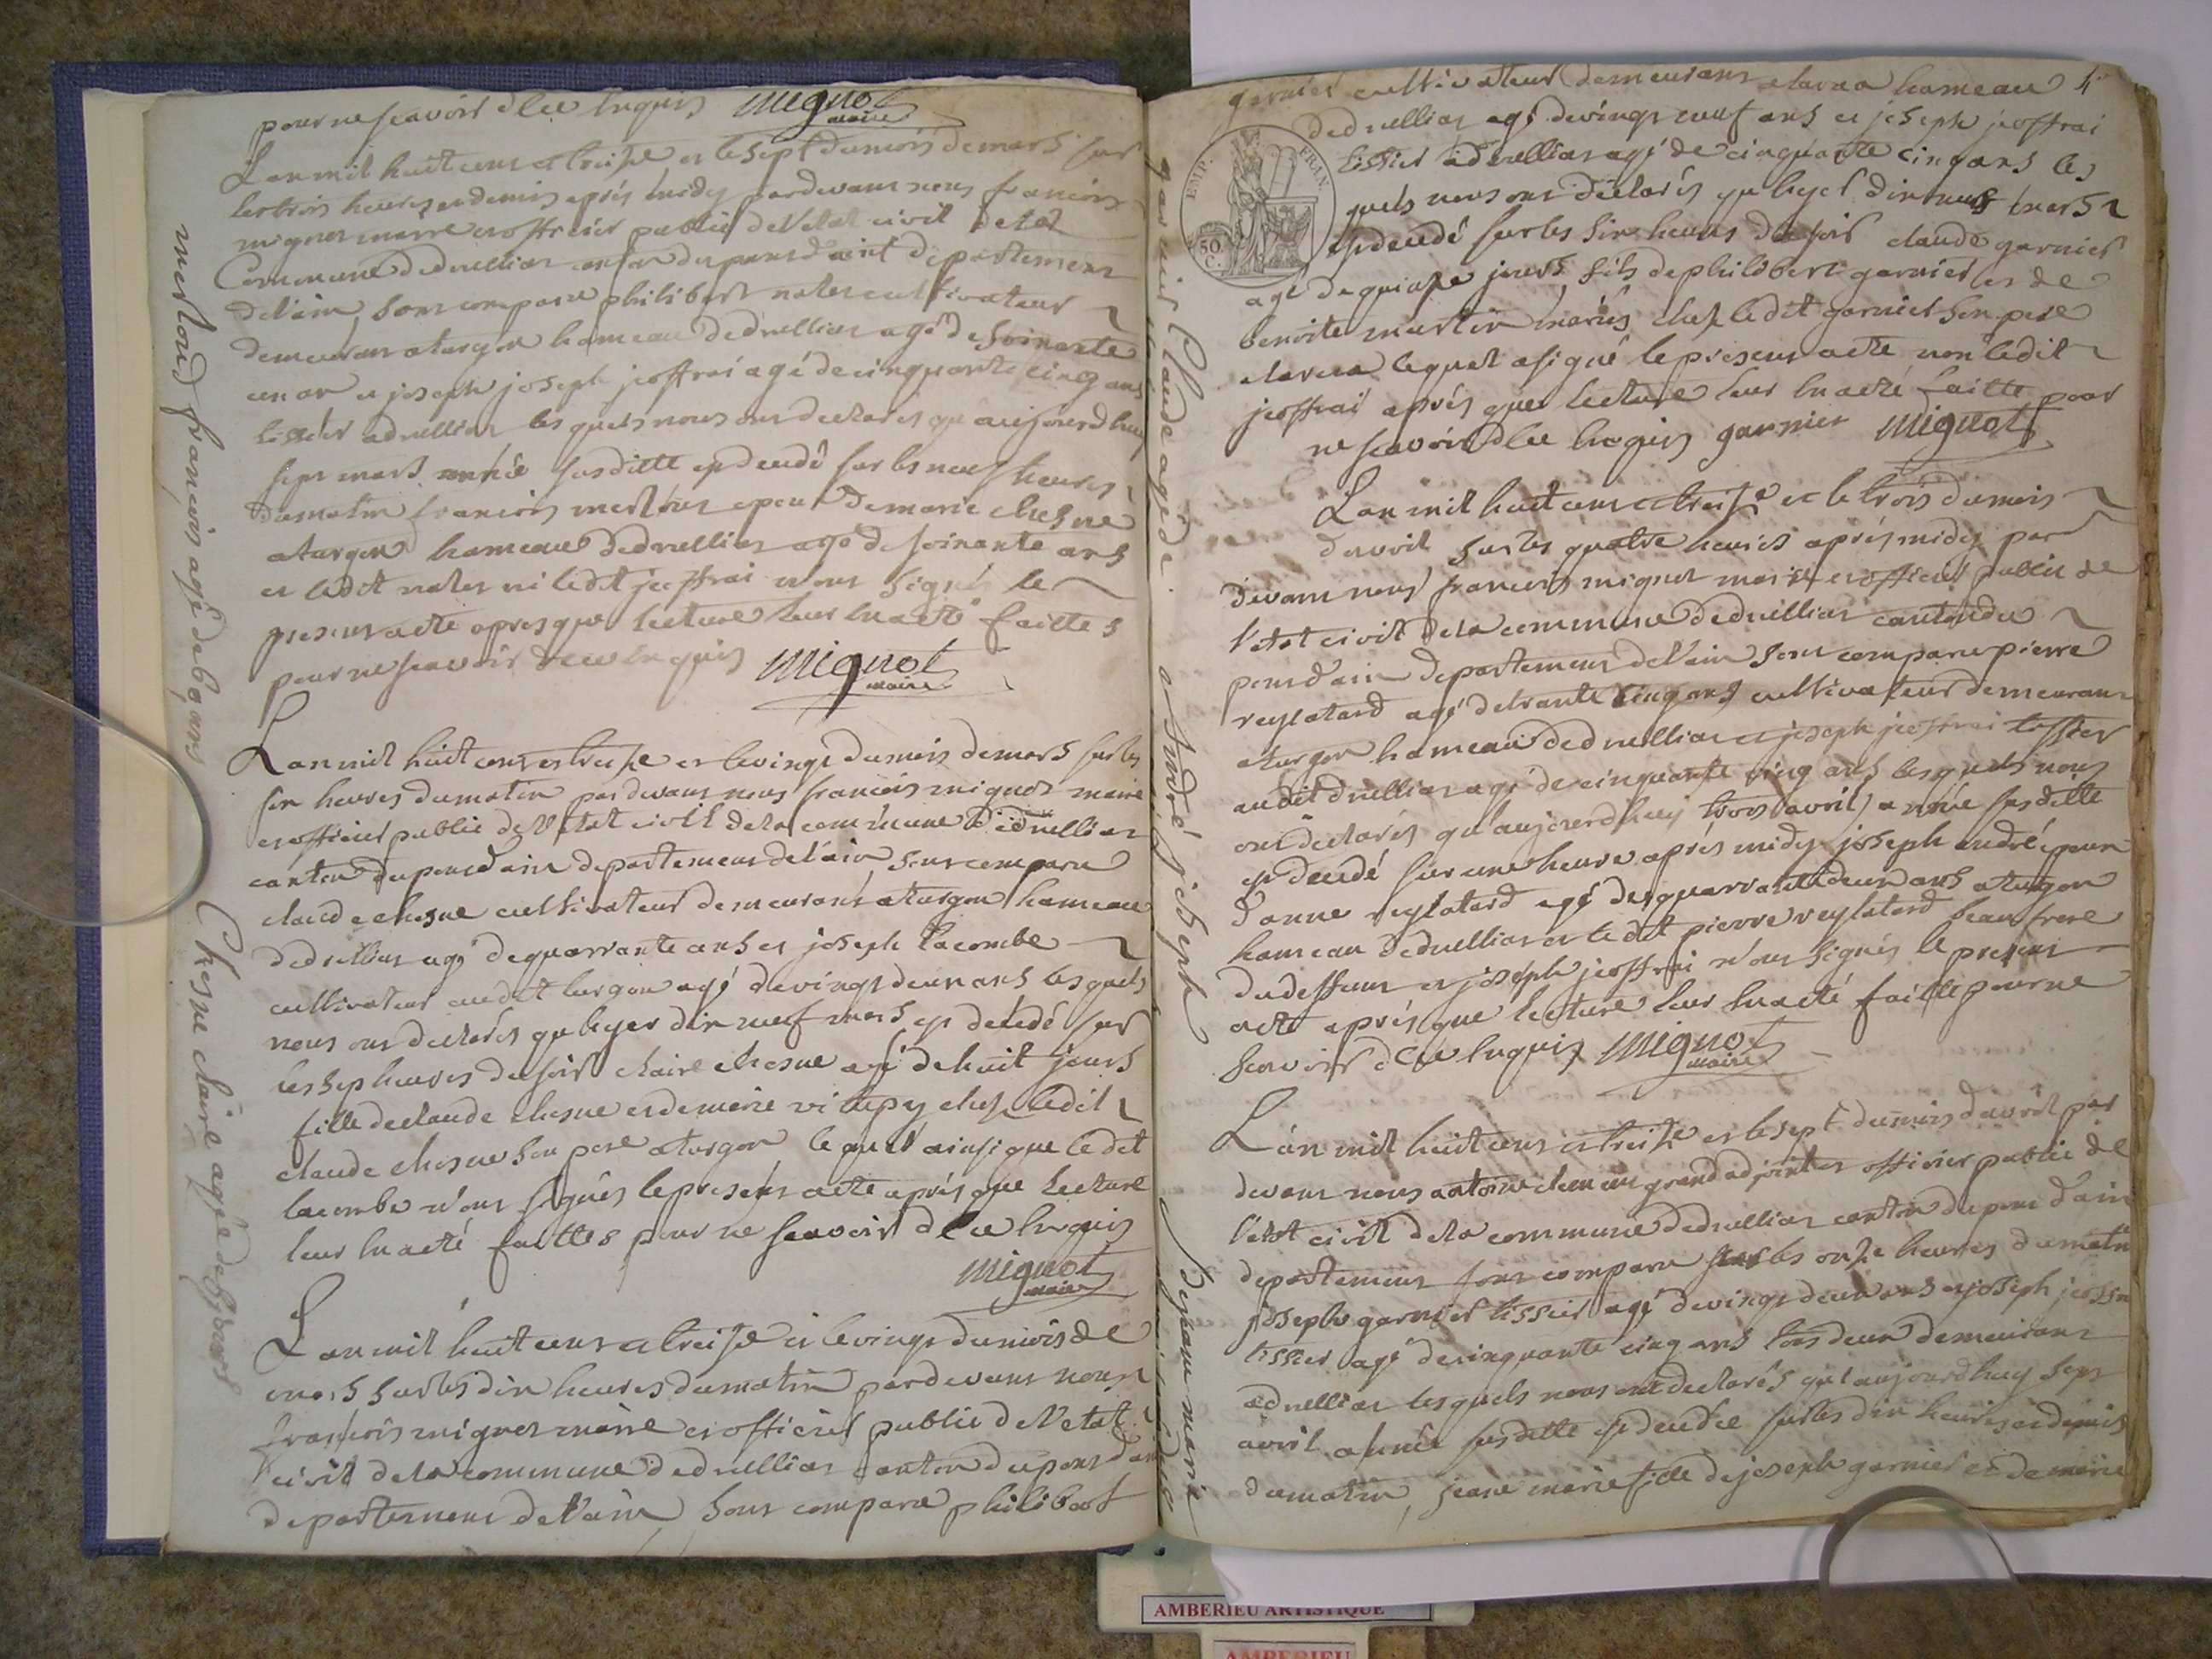 pour ne scavoir de ce enquis mignot
maire
Lan mil huit cens et treize et le sept du mois de mars sur
les trois heures et demis après midy pardevant nous francois
mignot maire et officier public de l'etat civil de la
Commune de druillias canton du pons d'ain departement
de l'ain sont comparu philibert cultivateur
demeurans a turgon hameau de druillias agé de soixante
un an et joseph joseph jeoffrai agé de cinquante cinq ans
tissier a druillias lesquels nous ont declarés qu'aujourdhuy
sept mars année susditte est decedé sur les neuf heures
du matin francois merloud epoux de marie chesne
a turgon hameau de druillias agé de soixante ans
et ledit ni ledit jeoffrai n'ont signé le
present acte apres que lecture leur en a eté faittes
pour ne scavoir de ce enquis mignot
maire
Lan mil huit cens et treize et le vingt du mois de mars sur les
six heures du matin pardevant nous francois mignot maire
et officier public de l'etat civil de la commune de druillias
canton du pons d'ain departement de l'ain sont comparu
claude chesne cultivateur demeurant a turgon hameau
de druillias agé de quarrante ans et joseph lacombe
cultivateur audit turgon agé de vingt deux ans lesquels
nous ont declarés que hyer dix neuf mars est décédé sur
les sept heures du soir claire chesne agé de huit jours
fille de claude chesne et de marie chez ledit
claude chesne son pere a turgon lequel ainsi que ledit
lacombe n'ont signés le present acte après que lecture
leur en a eté faittes pour ne scavoir de ce enquis
mignot
maire
Lan mil huit cens et treize et le vingt du mois de
mars sur les dix heures du matin pardevant nous
francois mignot maire et officier public de l'etat
civil de la commune de druillias canton du pons d'ain
departement de l'ain sont comparu philibert
merloud francois agé de 60 ans
Chesne claire agée de 8 jours
garnier cultivateur demeurans a hameau 4
de druillias agé de vingt neuf ans et joseph jeoffrai
tissier a druillias agé de cinquante cinq ans les
quels nous ont déclarés que hyer dix neuf mars
est decedé sur les six heures du soir claude garnier
agé de quinze jours fils de philibert garnier et de
benoite martin mariés chez ledit garnier son pere
lequel a signé le present acte non ledit
jeoffrai après que lecture leur en a eté faitte pour
ne scavoir de ce enquis garnier mignot
EMP. FRAN.
50 C.
Lan mil huit cens et treize et le trois du mois
d'avril sur les quatre heures après midy par
devant nous francois mignot maire et officier public de
l'etat civil de la commune de druillias canton du
pons d'ain departement de l'ain sont comparu pierre
reylatard agé de trante cinq ans cultivateur demeurans
a turgon hameau de druillias et joseph jeoffrai tissier
audit druillias agé de cinquante cinq ans lesquels nous
ont declarés qu'aujourdhuy trois avril année susditte
est decedé sur une heure après midy joseph andré epoux
d'anne reylatard agé de quarrante deux ans a turgon
hameau de druillias et ledit pierre reylatard beau frere
du deffunt et joseph jeoffrai n'ont signés le present
acte après que lecture leur en a eté faitte pour ne
scavoir de ce enquis mignot
maire
Lan mil huit cens et treize et le sept du mois d'avril par
devant nous antoine grand adjoint et officier public de
l'etat civil de la commune de druillias canton du pons d'ain
departement sont comparu sur les onze heures du matin
joseph garnier tissier agé de vingt deux ans et joseph
tissier agé de cinquante cinq ans tous deux demeurans
a druillias lesquels nous ont declarés qu'aujourdhuy sept
avril année susditte est decedée sur les dix heures et demis
du matin jeane marie fille de joseph garnier et de marie
garnier Claude agé de
andré joseph
jeane marie
AMBERIEU ARTISTIQUE
AMBERIEU